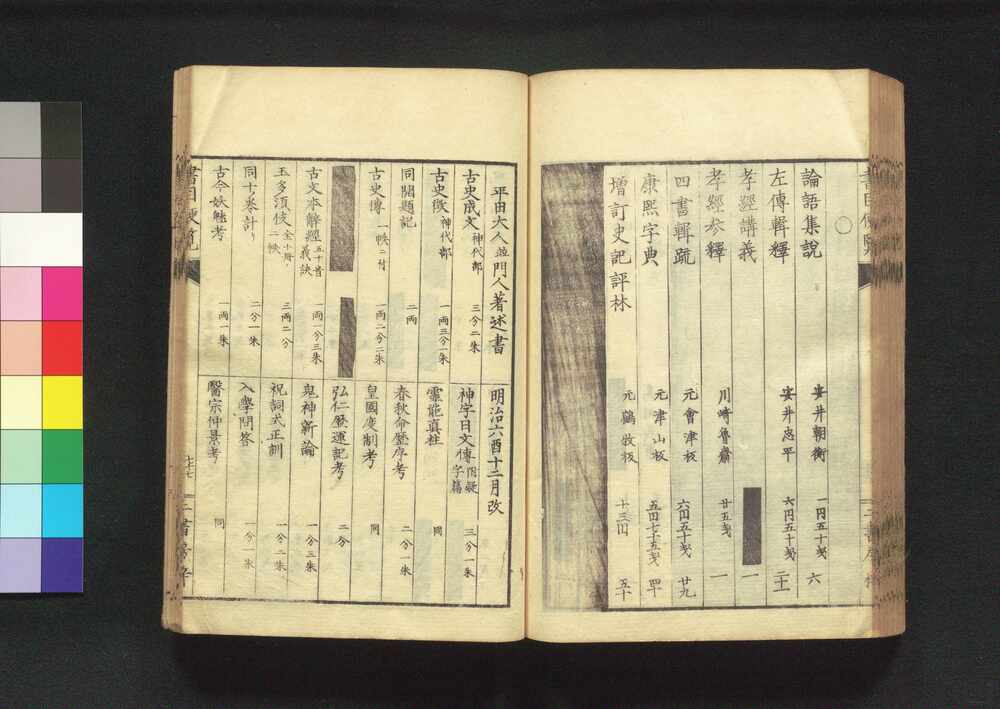 〇
論語集說 安井朝衡 一円五十戋 六
左傳輯釋 安井忠平 六円五十戋 二十一
孝經講義 一
孝經参釋 川崎魯齋 廿五戋 一
四書輯疏 元會津板 六円五十戋 廿九
康熙字典 元津山板 五円七十五戋 四十
增訂史記評林 元鶴牧板 十三円 五十
平田大人並門人著述書 明治六酉十二月改
古史成文 神代部 三分二朱
古史徴 神代部 一両三分一朱
同開題記 二両
古史傳 一帙ニ付 一両二分二朱
古文本辭經 五十音義訣 一両一分三朱
玉多須伎 全十冊 二帙 三両二分
同 二分一朱
古今妖魅考 一両一朱
神字日文傳 附疑字篇 三分一朱
靈能真柱 同
春秋命歴序考 二分一朱
皇國度制考 同
弘仁歴運記考 二分
鬼神新論 一分三朱
祝詞式正訓 一分二朱
入學問答 一分一朱
醫宗仲景考 同
七十七